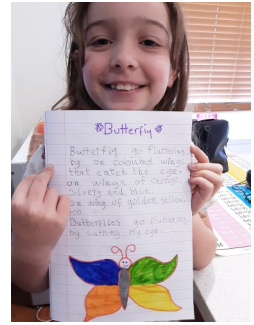 Butterfly
Butterfly go fluttering
by on coloured wings
that catch the eye-
on wings of orange,
Silvery and blue.
on wing of golden yellow
too
Butterflies go fluttering
by